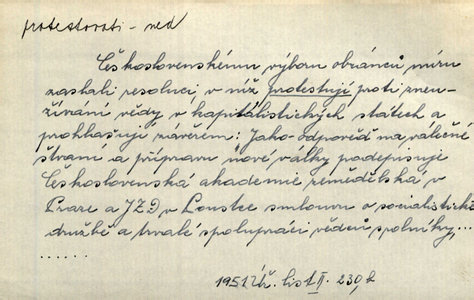 protestovati - ned
Československému výboru obránců míru
zaslali resoluci, v níž protestují proti zneu-
žívání vědy v kapitalistických státech a
prohlašuje závěrem: Jako odpověď na válečné
štvaní a přípravu nové války podepisuje
Československá akademie zemědělská v
Praze a JZD v Loučce smlouvu o socialistické
družbě a trvalé spolupráci vědců s rolníky,...
......
1951 Úř. list II. 230,